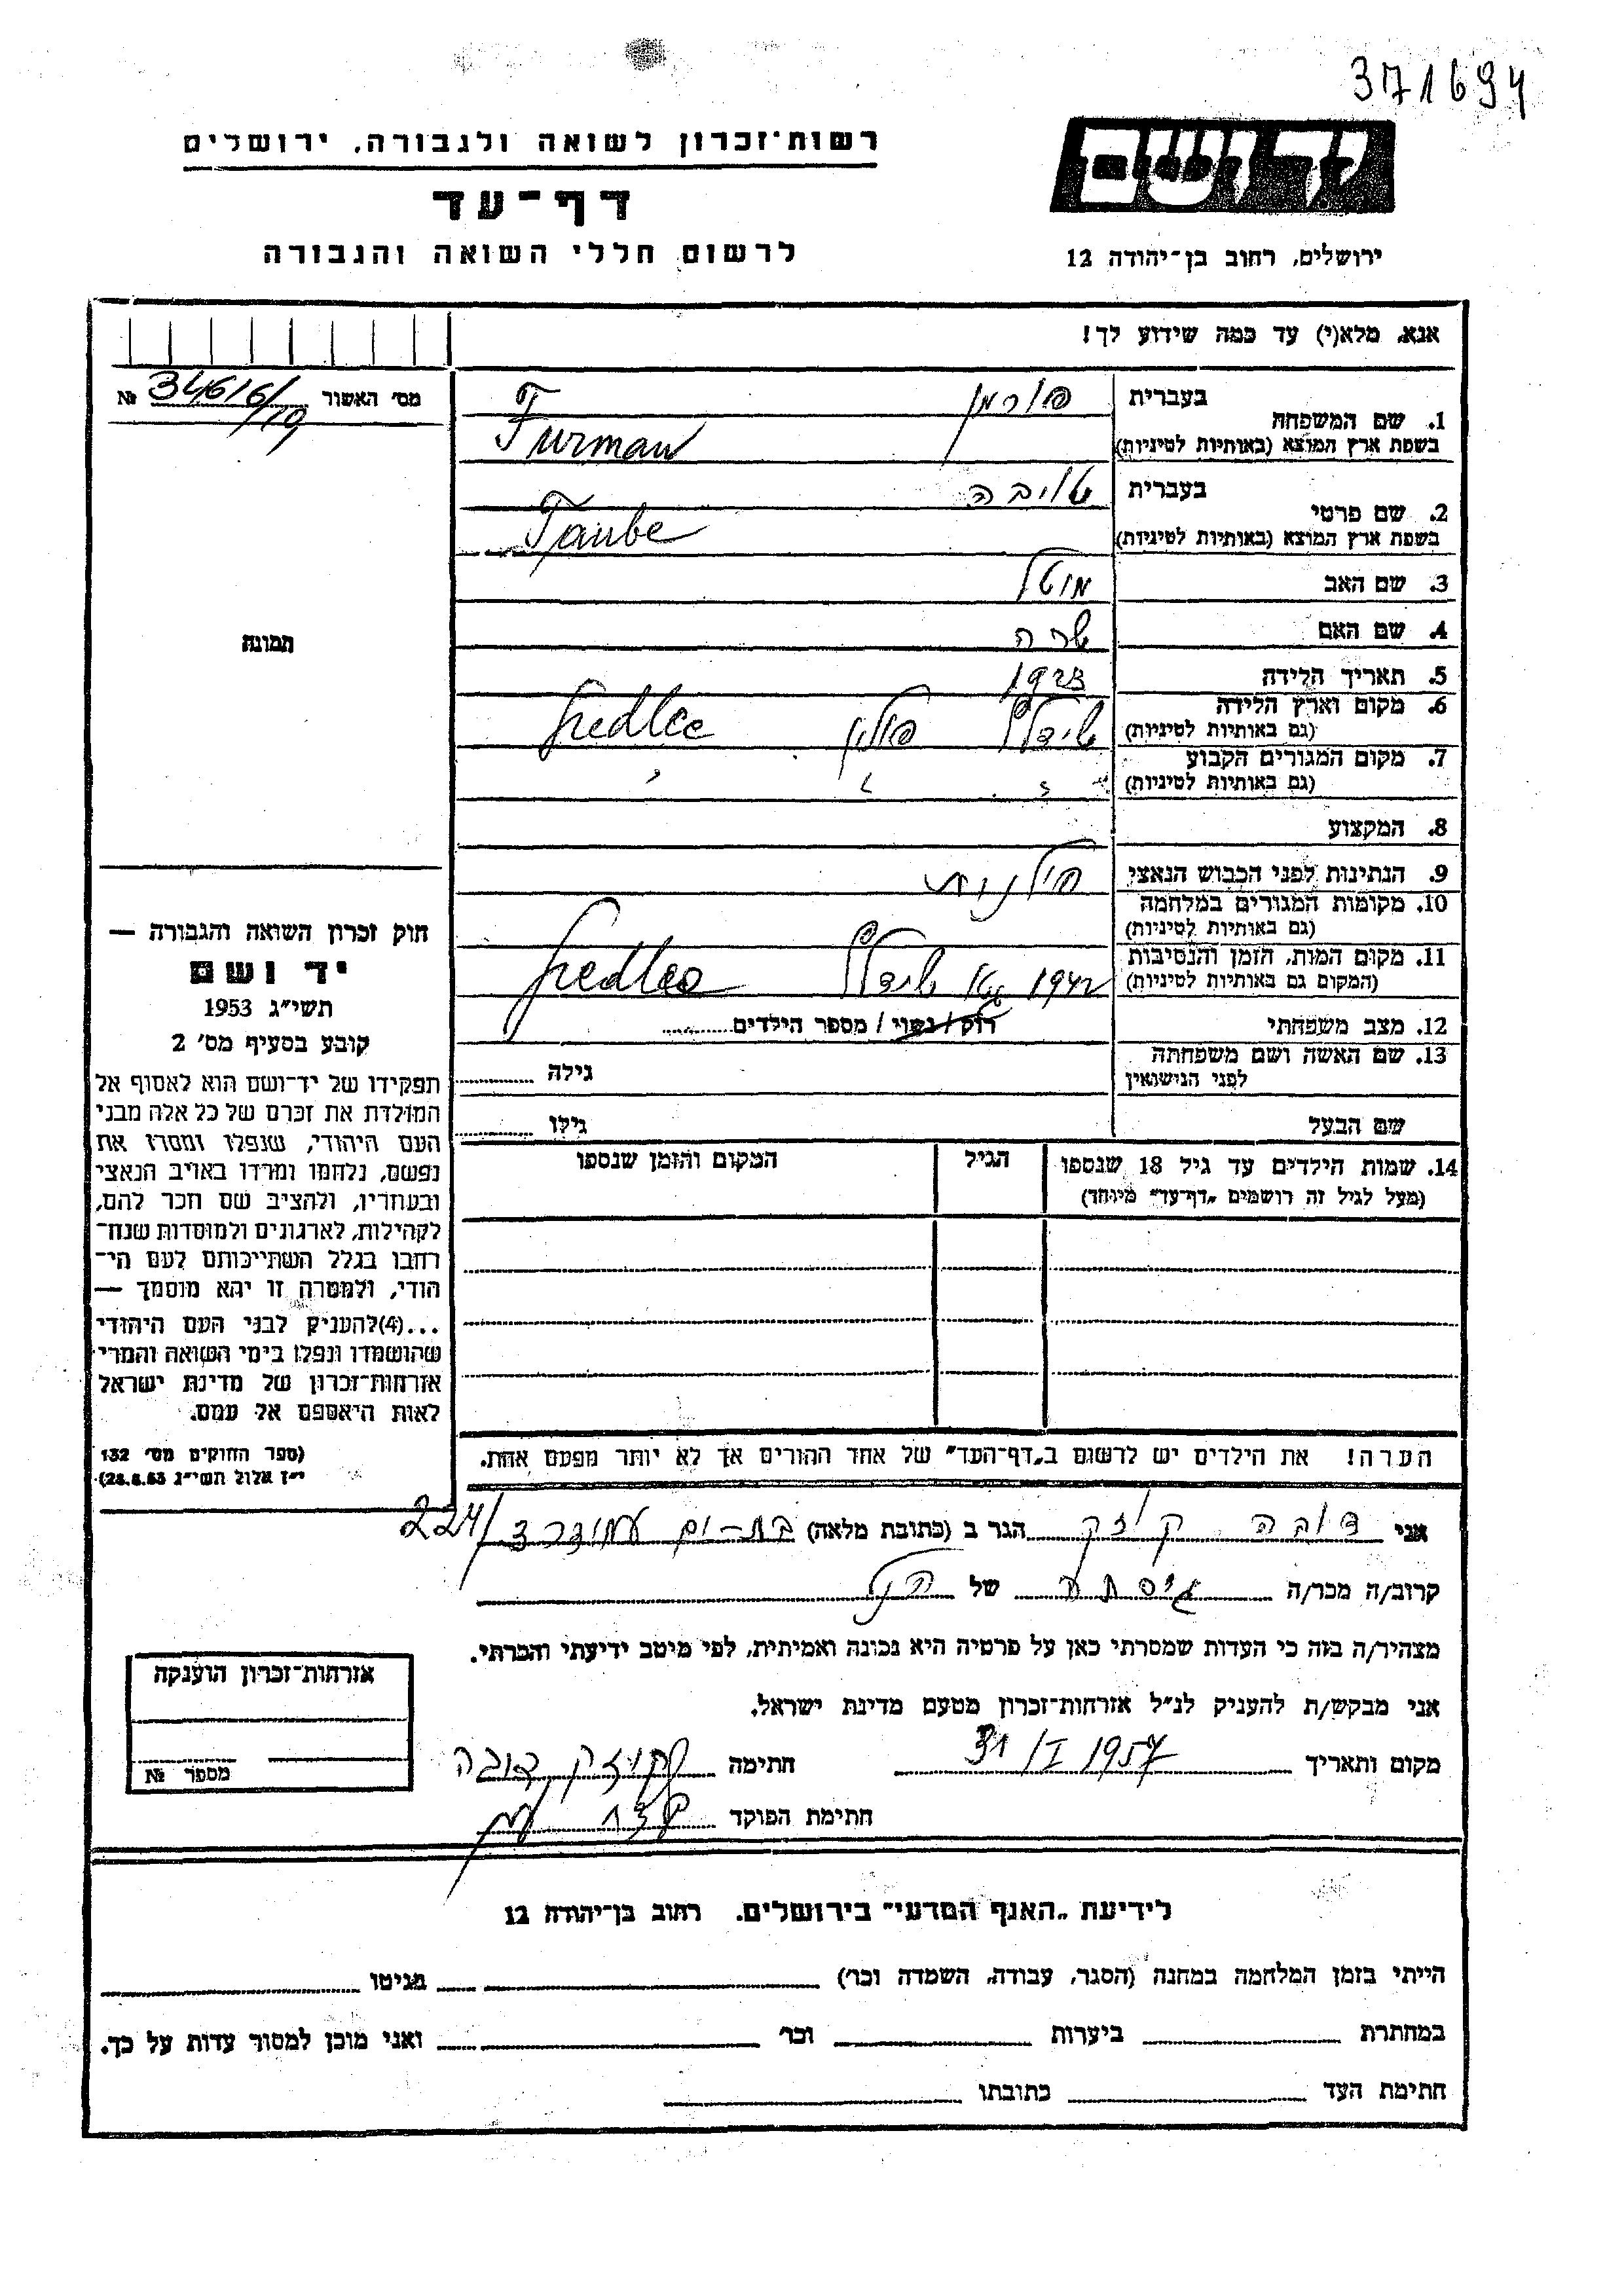 371694
רשות־זכרון לשואה ולגבורה, ירושלים
יד ושם
דף־עד
לרשום חללי השואה והגבורה
ירושלים, רחוב בן־יהודה 12
אנא, מלא(י) עד כמה שידוע לך!
מס' האשור № 34616/19
1. שם המשפחה
בעברית פורמן
בשפת ארץ המוצא (באותיות לטיניות) Furman
2. שם פרטי
בעברית טויבה
בשפת ארץ המוצא (באותיות לטיניות) Taube
3. שם האב מוטל
4. שם האם שרה
5. תאריך הלידה 1923
6. מקום וארץ הלידה שידלץ פולין Siedlce
(גם באותיות לטיניות)
7. מקום המגורים הקבוע
(גם באותיות לטיניות)
8. המקצוע
9. הנתינות לפני הכבוש הנאצי פולנית
10. מקומות המגורים במלחמה
(גם באותיות לטיניות)
11. מקום המות, הזמן והנסיבות 1942 שידלץ Siedlce
(המקום גם באותיות לטיניות)
12. מצב משפחתי רוק / נשוי / מספר הילדים
13. שם האשה ושם משפחתה
לפני הנישואין
גילה
שם הבעל
גילו
14. שמות הילדים עד גיל 18 שנספו
(מעל לגיל זה רושמים „דף־עד" מיוחד)
הגיל
המקום והזמן שנספו
הערה! את הילדים יש לרשום ב„דף־העד" של אחד ההורים אך לא יותר מפעם אחת.
תמונה
חוק זכרון השואה והגבורה —
יד ושם
תשי"ג 1953
קובע בסעיף מס' 2
תפקידו של יד־ושם הוא לאסוף אל
המולדת את זכרם של כל אלה מבני
העם היהודי, שנפלו ומסרו את
נפשם, נלחמו ומרדו באויב הנאצי
ובעוזריו, ולהציב שם וזכר להם,
לקהילות, לארגונים ולמוסדות שנח־
רבו בגלל השתייכותם לעם הי־
הודי, ולמטרה זו יהא מוסמך —
...(4)להעניק לבני העם היהודי
שהושמדו ונפלו בימי השואה והמרי
אזרחות־זכרון של מדינת ישראל
לאות היאספם אל עמם.
(ספר החוקים מס' 132
י"ז אלול תשי"ג 28.8.53)
אני דובה קוזק הגר ב (כתובת מלאה) בת-ים עמידר 3/224
קרוב/ה מכר/ה גיסתה של הנ"ל
מצהיר/ה בזה כי העדות שמסרתי כאן על פרטיה היא נכונה ואמיתית, לפי מיטב ידיעתי והכרתי.
אני מבקש/ת להעניק לנ"ל אזרחות־זכרון מטעם מדינת ישראל.
מקום ותאריך 31/I 1957 חתימה קוזק דובה
חתימת הפוקד
אזרחות־זכרון הוענקה
מספר №
לידיעת „האגף המדעי" בירושלים. רחוב בן־יהודה 12
הייתי בזמן המלחמה במחנה (הסגר, עבודה, השמדה וכו') בגיטו
במחתרת ביערות וכו' ואני מוכן למסור עדות על כך.
חתימת העד כתובתו